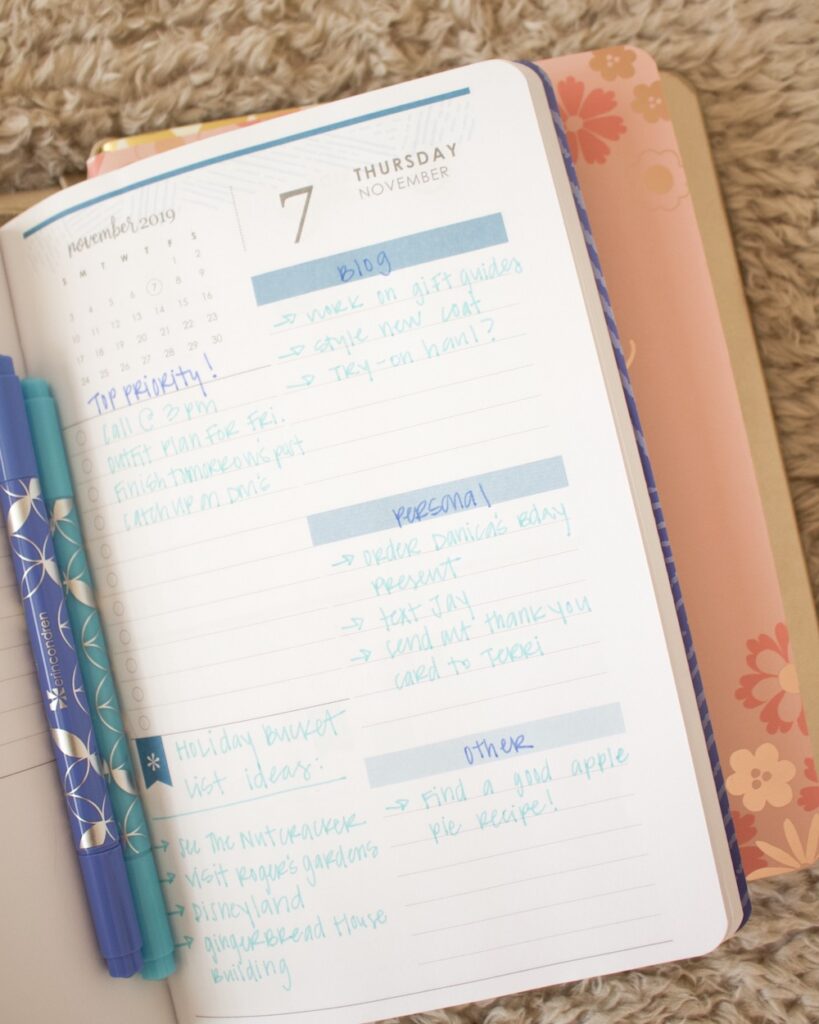 november 2019
S M T W T F S
1 2
3 4 5 6 7 8 9
10 11 12 13 14 15 16
17 18 19 20 21 22 23
24 25 26 27 28 29 30
TOP PRIORITY!
call @ 3 pm
outfit plan for Fri.
Finish tomorrow's post
catch up on DM's
Holiday Bucket
List ideas:
→ see The Nutcracker
→ visit Roger's gardens
→ Disneyland
→ gingerBread House
Building
7
THURSDAY
NOVEMBER
Blog
→ work on gift guides
→ style new coat
→ Try-on haul?
Personal
→ order Danica's Bday
present
→ text Jay
→ send out thank you
card to Terri
other
→ Find a good apple
pie recipe!
erincondren